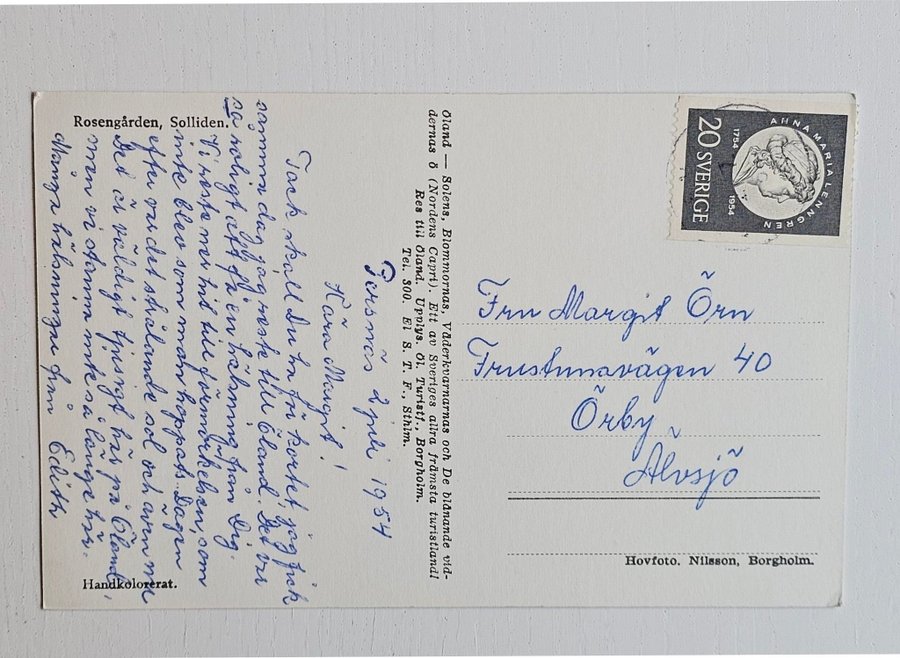 Rosengården, Solliden.
Persnäs 2 juli 1954
Kära Margit!
Tack skall Du ha för kortet, jag fick
samma dag jag reste till Öland. Det var
så roligt att få en hälsning från Dig.
Vi reste ner hit till sörmörkelsen, som
inte blev som man hoppats. Dagen
efter var det strålande sol och även nu
Det är väldigt tjusigt här på Öland,
men vi stannar inte så länge här.
Många hälsningar från Edith
Handkolorerat.
Öland — Solens, Blommornas, Väderkvarnarnas och De blånande vid-
dernas ö (Nordens Capri). Ett av Sveriges allra främsta turistland!
Res till Öland. Upplys. Öl. Turistf., Borgholm.
Tel. 300. El S. T. F., Sthlm.
ANNA MARIA LENNGREN
1754
1954
20 SVERIGE
Fru Margit Örn
Frustunavägen 40
Örby
Älvsjö
Hovfoto. Nilsson, Borgholm.